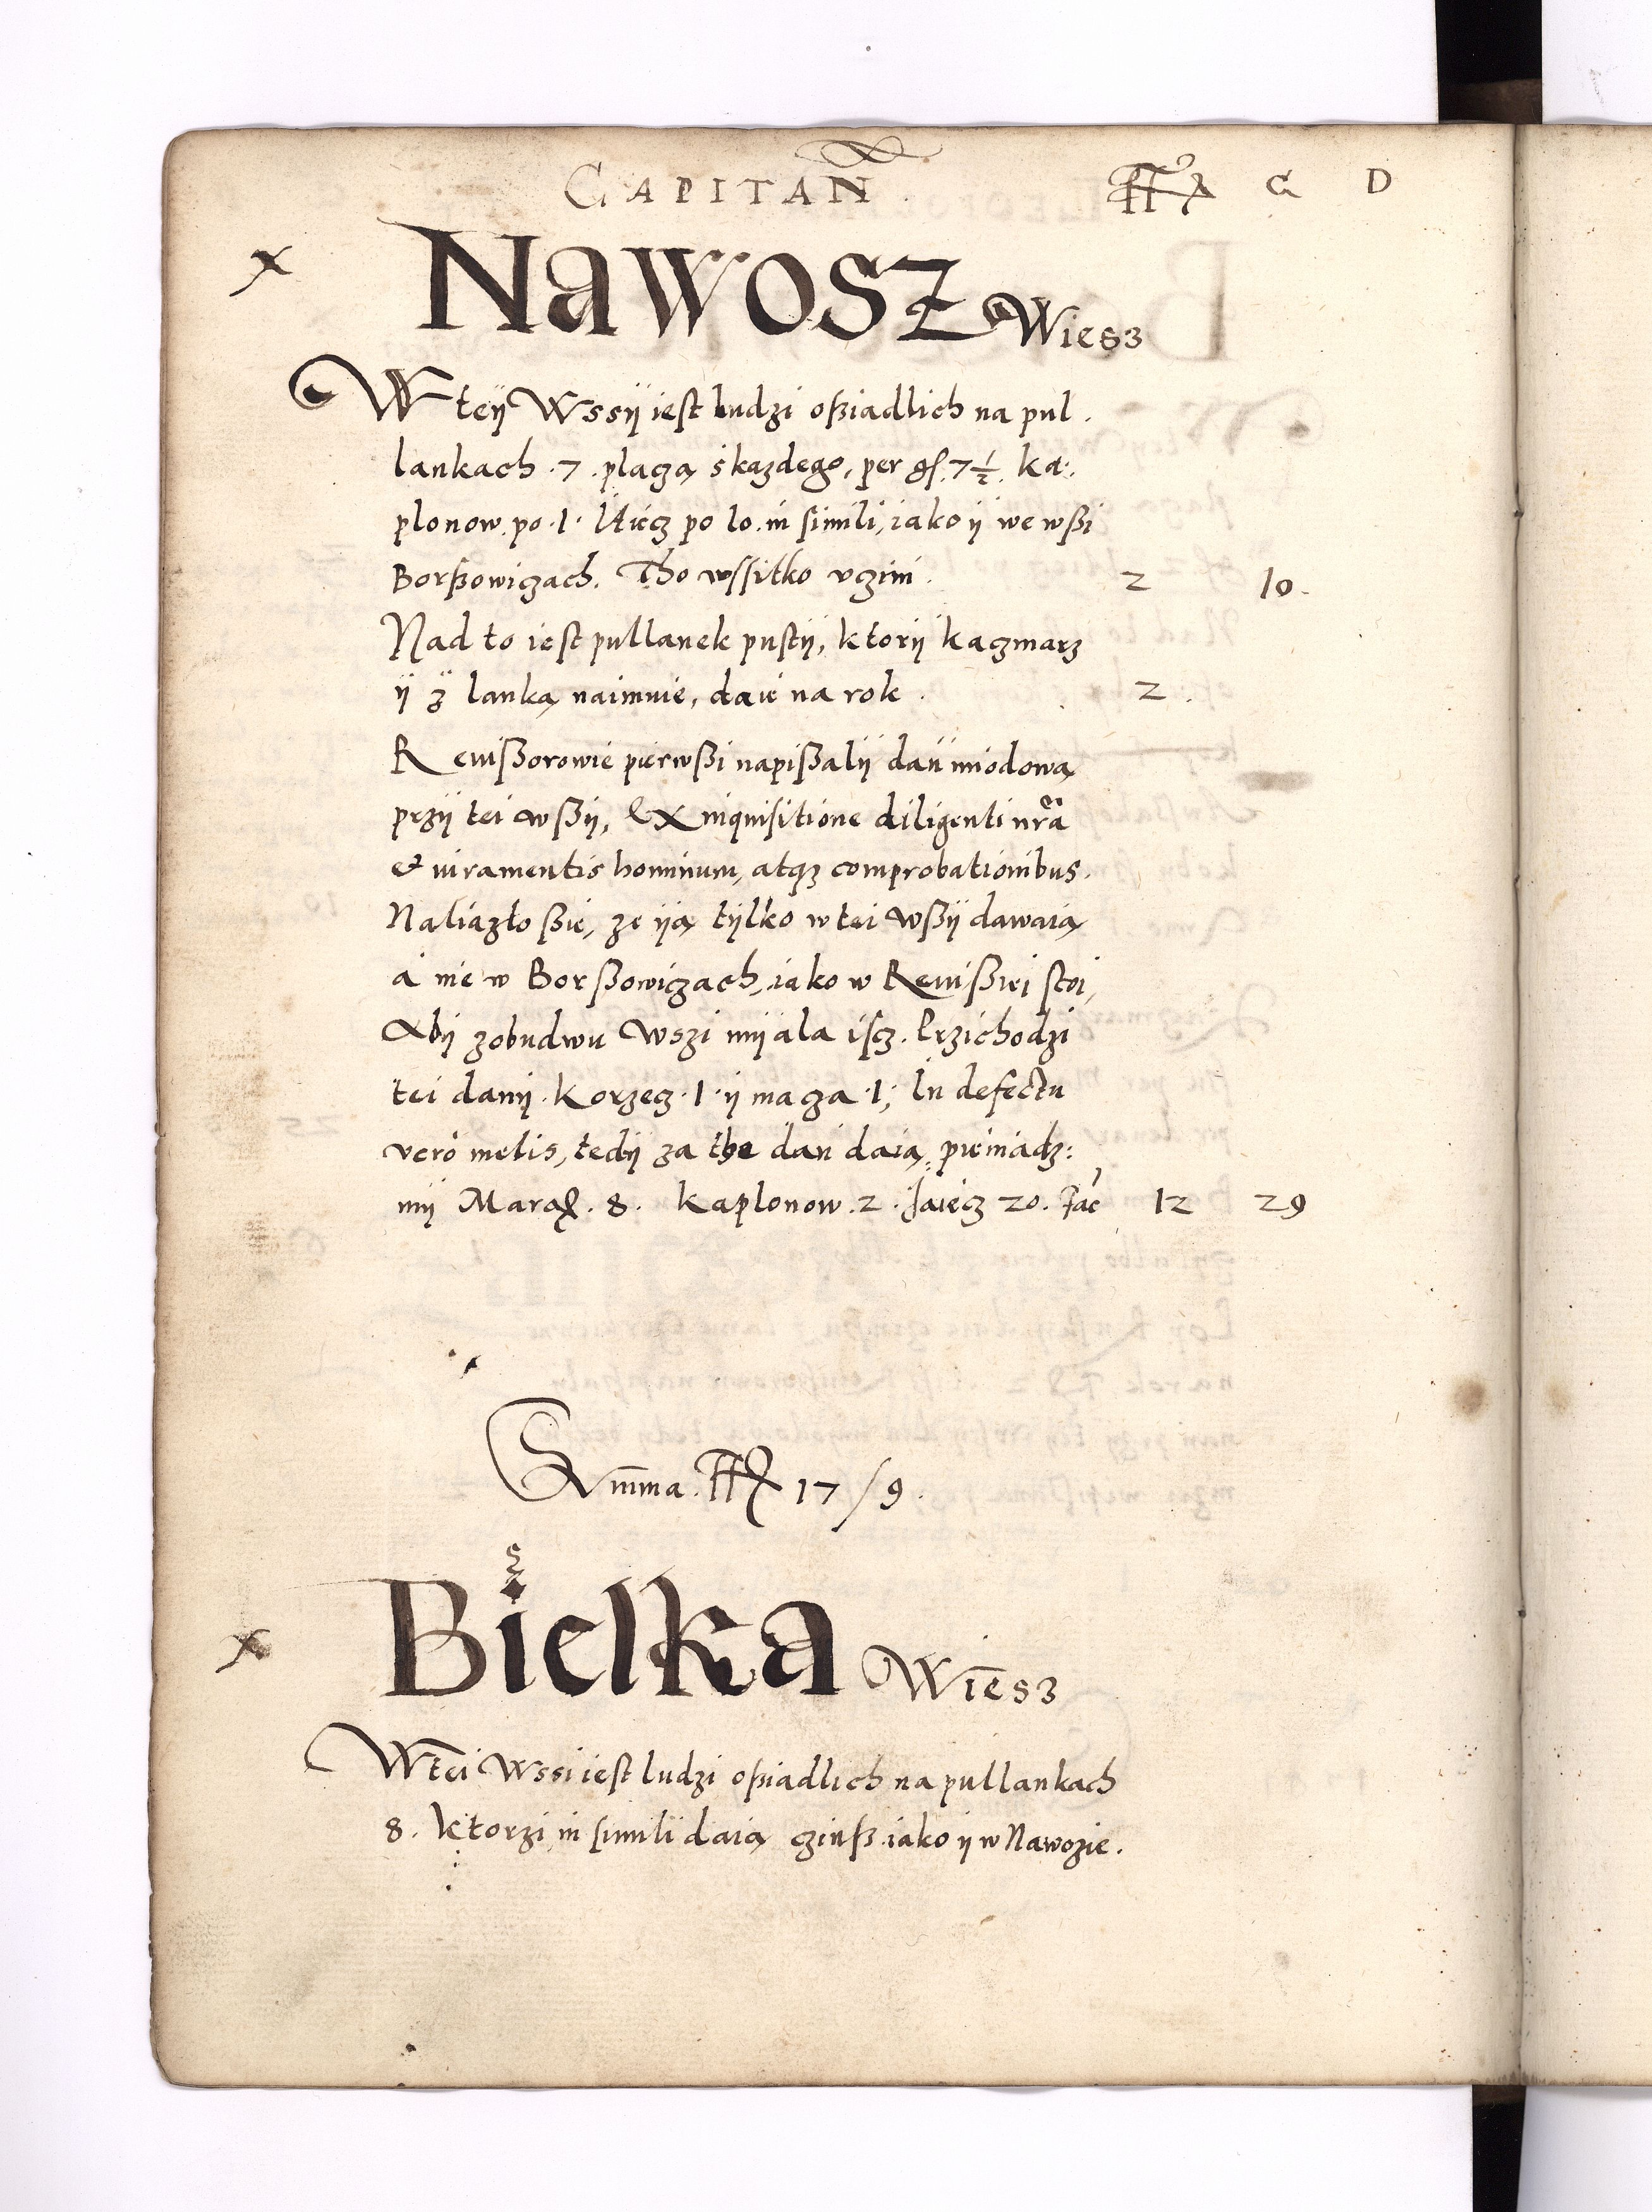 CAPITAN̄. G D
Nawosz Wiesz
W teÿ Wssÿ iest ludzi oßiadlich na pul.
lankach .7. placzą s každego, per gſ. 7½. ka:
plonow. po .1. Iaiecz po 10. in simili, iako ÿ we wßi
Borßowiczach. Tho wssitko vczini. 2 10.
Nad to iest pullanek pustÿ, ktorÿ kaczmarz
ÿ z lanką naimuie, daie na rok. 2.
Rewißorowie pierwßi napißalÿ dań miodową
przÿ tei wßÿ, Ex inquisitione diligenti nr̄a
et iuramentis hominum, atqz comprobationibus.
Naliazło ßie, ze ÿą tÿlko w tei wßÿ dawaią
á nie w Borßowiczach, iako w Rewißiei stoi,
Abÿ z obudwu Wszi mÿala iscz. Przichodzi
tei danÿ. Korzecz .1. ÿ macza .1; In defectu
vero melis, tedÿ za the dań daią, pieniadz:
mÿ Marcas. 8. kaplonow .2. Jaiecz 20. Fac 12 29
Summa. 17/9.
Bielka Wiesz
W tei Wssi iest ludzi oßiadlich na pullankach
8. Ktorzi, in simili daią czinß iako ÿ w Nawozie.